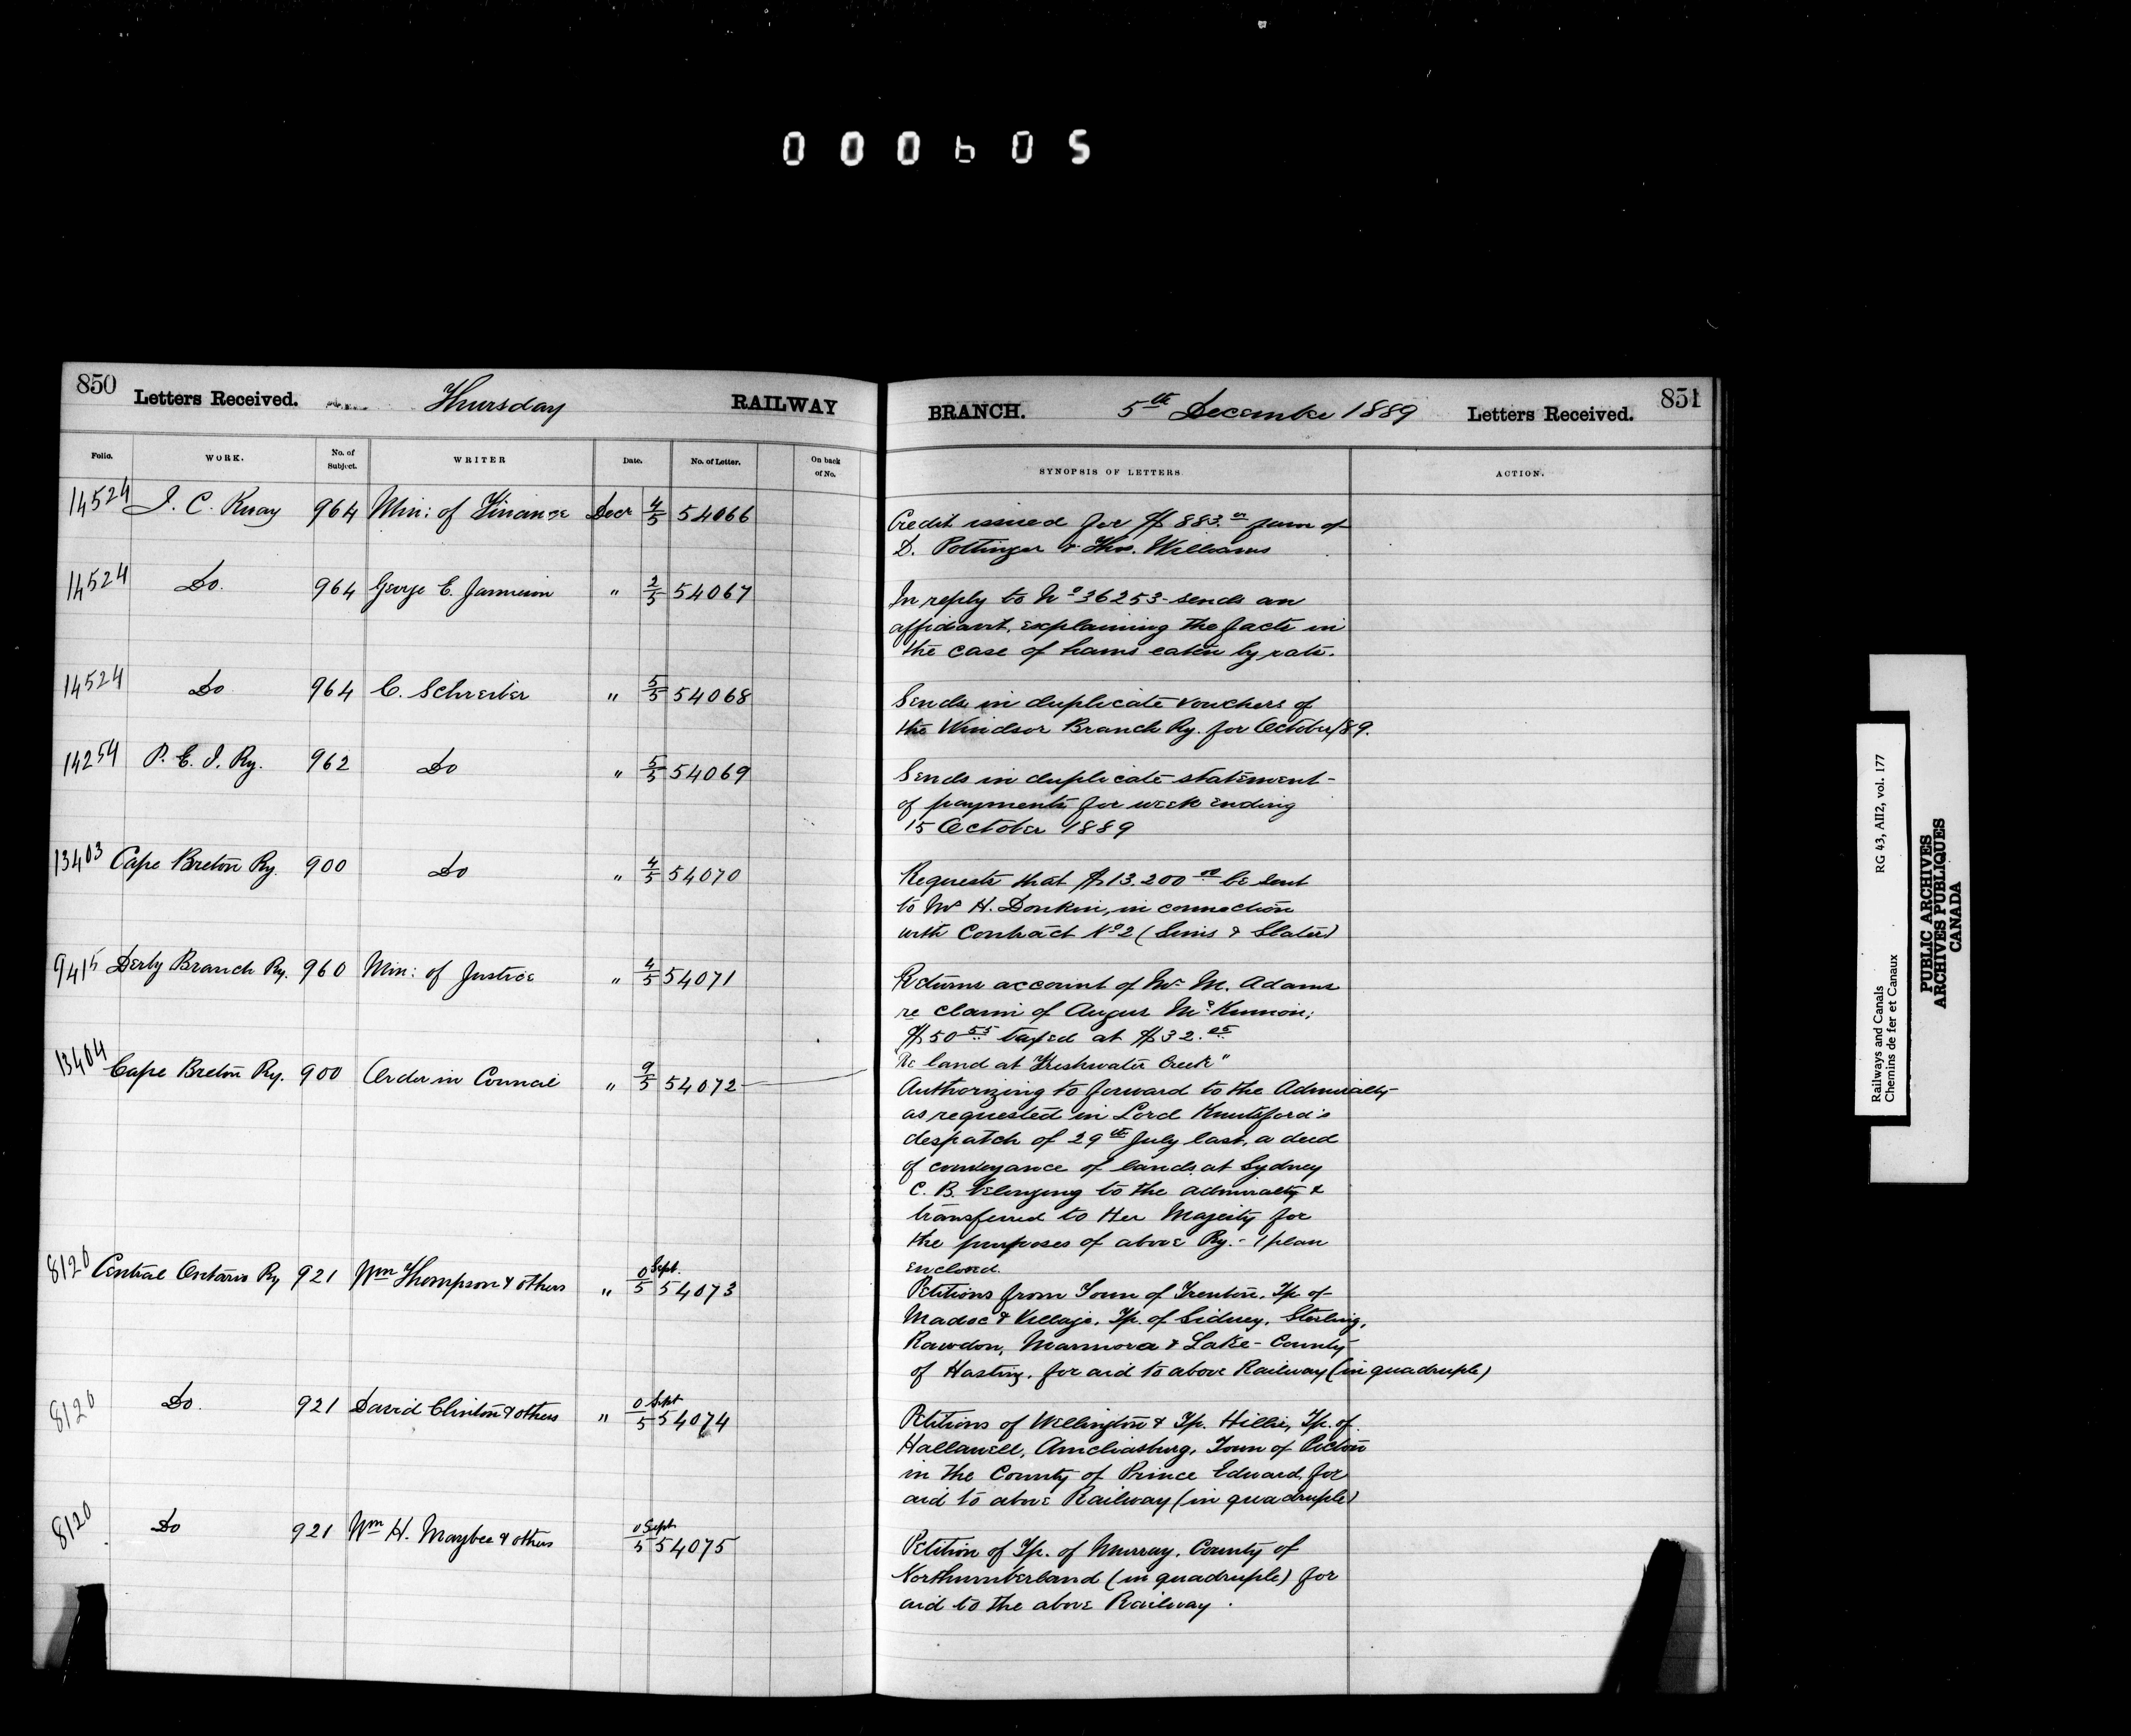 000605
850 Letters Received. Thursday RAILWAY
Folio. WORK. No. of Subject. WRITER Date. No. of Letter. On back of No.
14524 I. C. Rway 964 Min: of Finance Decr 4/5 54066
14524 Do. 964 George E. " 2/5 54067
14524 Do 964 C. Schreiber " 5/5 54068
14254 P. E. I. Ry. 962 Do " 5/5 54069
13403 Cape Breton Ry. 900 Do " 4/5 54070
9415 Derby Branch Ry. 960 Min: of Justice " 4/5 54071
13404 Cape Breton Ry. 900 Order in Council " 9/5 54072
8120 Central Ontario Ry 921 Wm Thompson & others " 0/5 Sept. 54073
8120 Do. 921 David Clinton & others " 0/5 Sept 54074
8120 Do 921 Wm H. Maybee & others 0/5 Sept 54075
BRANCH. 5th December 1889 Letters Received. 851
SYNOPSIS OF LETTERS ACTION.
Credit issued for $883. favor of
D. Pottinger & Thos. Williams
In reply to No 36253 sends an
affidavit, explaining the facts in
the case of hams eaten by rats.
Sends in duplicate vouchers of
the Windsor Branch Ry. for October/89.
Sends in duplicate statement
of payments for week ending
15 October 1889
Requests that $13.200 00 be sent
to Mr H. Donkin, in connection
with Contract No 2 (Sims & Slater)
Returns account of Mr M. Adams
re claim of Angus McKinnon;
$50 55 taxed at $32.
"Re land at Freshwater Creek"
Authorizing to forward to the Admiralty
as requested in Lord Knutsford's
despatch of 29th July last, a deed
of conveyance of lands at Sydney
C. B. belonging to the admiralty &
transferred to Her Majesty for
the purposes of above Ry. - 1 plan
enclosed.
Petitions from Town of Trenton, Tp. of
Madoc & Village, Tp. of Sidney, Sterling,
Rawdon, Marmora & Lake - County
of Hasting, for aid to above Railway (in quadruple)
Petitions of Wellington & Tp. Hillier, Tp. of
Hallawell, Ameliasburg, Town of Picton
in the County of Prince Edward for
aid to above Railway (in quadruple)
Petition of Tp. of Murray, County of
Northumberland (in quadruple) for
aid to the above Railway.
Railways and Canals RG 43, AII2, vol. 177
Chemins de fer et Canaux
PUBLIC ARCHIVES
ARCHIVES PUBLIQUES
CANADA